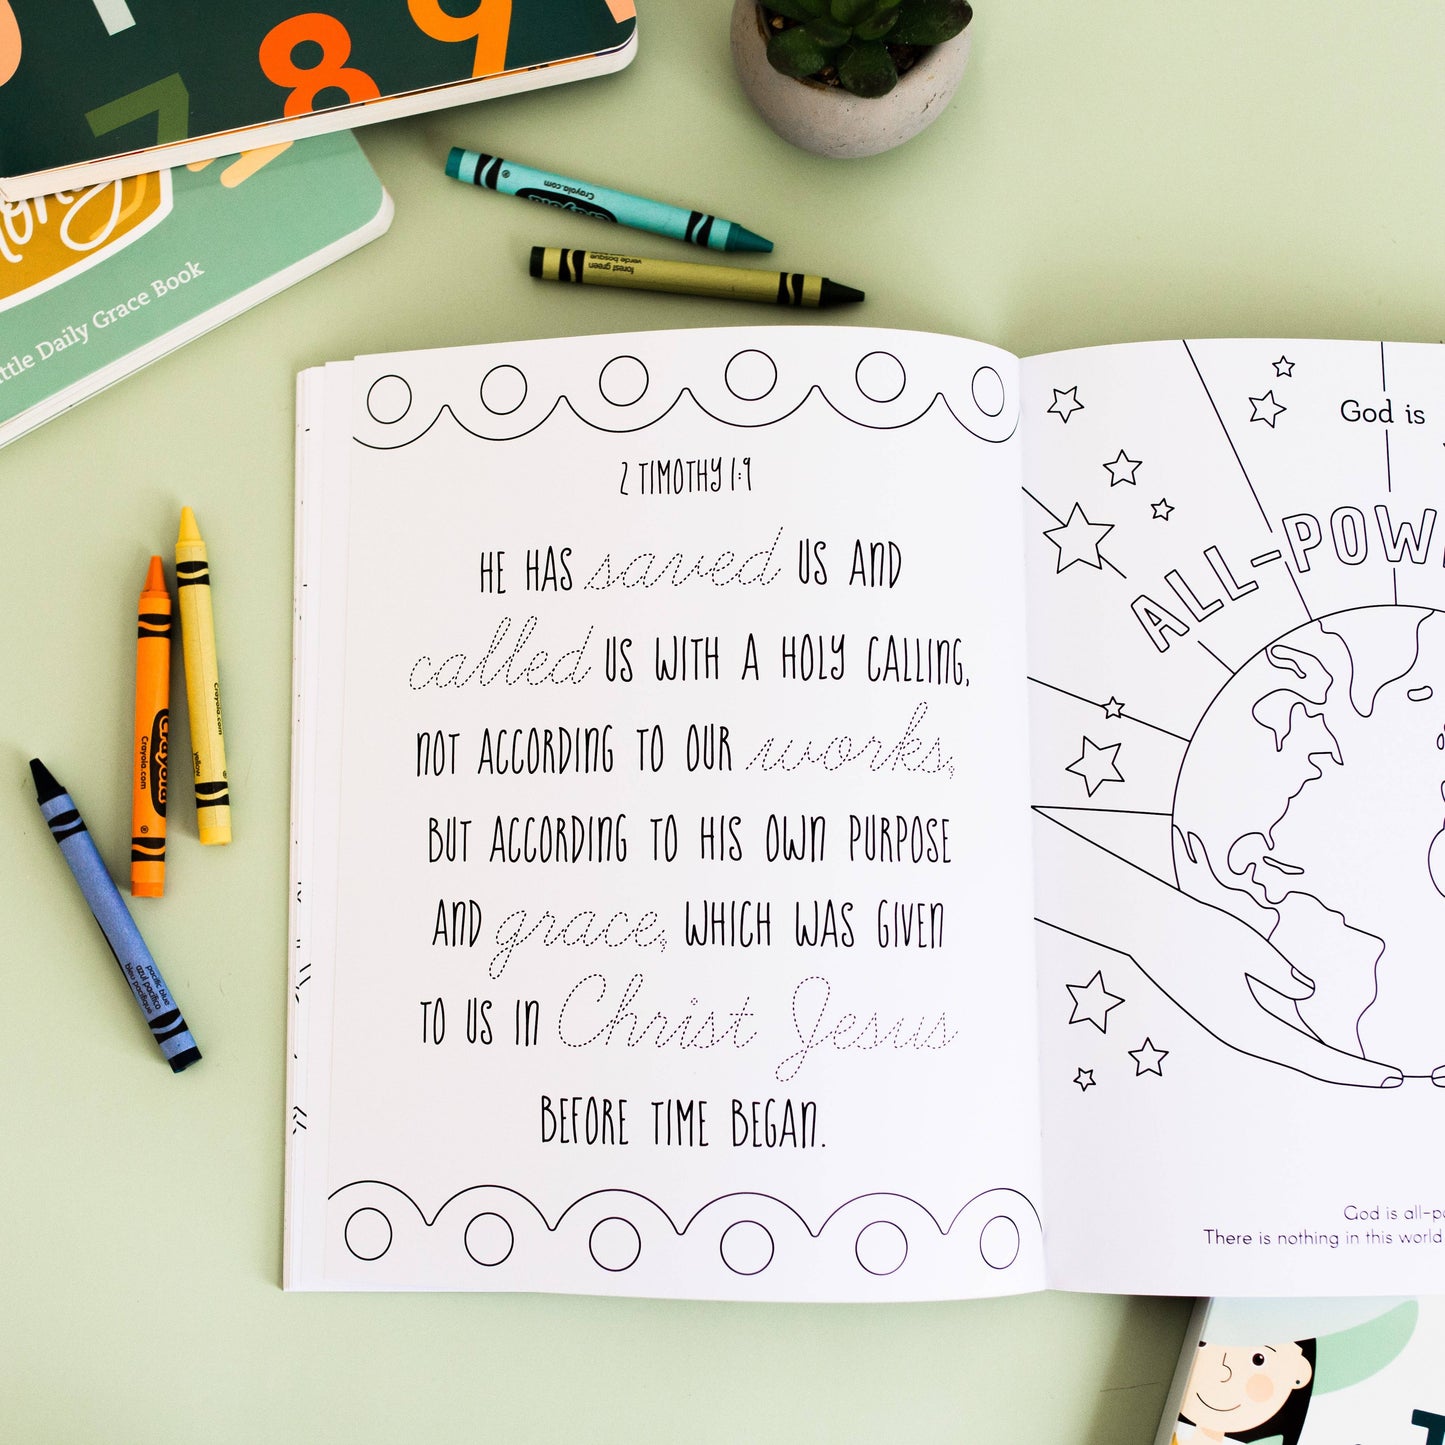 7
8
9
Daily Grace Book
Crayola.com
Crayola
forest green
verde bosque
Crayola
Crayola.com
Crayola.com
yellow
pacific blue
azul pacífico
bleu pacifique
2 TIMOTHY 1:9
HE HAS saved US AND
called US WITH A HOLY CALLING,
NOT ACCORDING TO OUR works,
BUT ACCORDING TO HIS OWN PURPOSE
AND grace, WHICH WAS GIVEN
TO US IN Christ Jesus
BEFORE TIME BEGAN.
God is
ALL-POW
God is all-po
There is nothing in this world